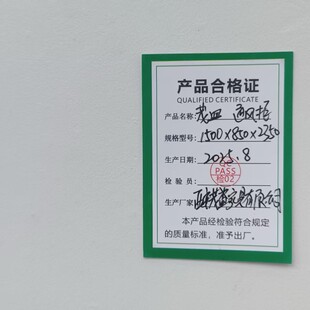 产品合格证
QUALIFIED CERTIFICATE
产品名称: 通风柜
规格型号: 1500×850×2350
生产日期: 2025.8
检验员: QC PASS 检02
生产厂家: 有限公司
本产品经检验符合规定
的质量标准，准予出厂。